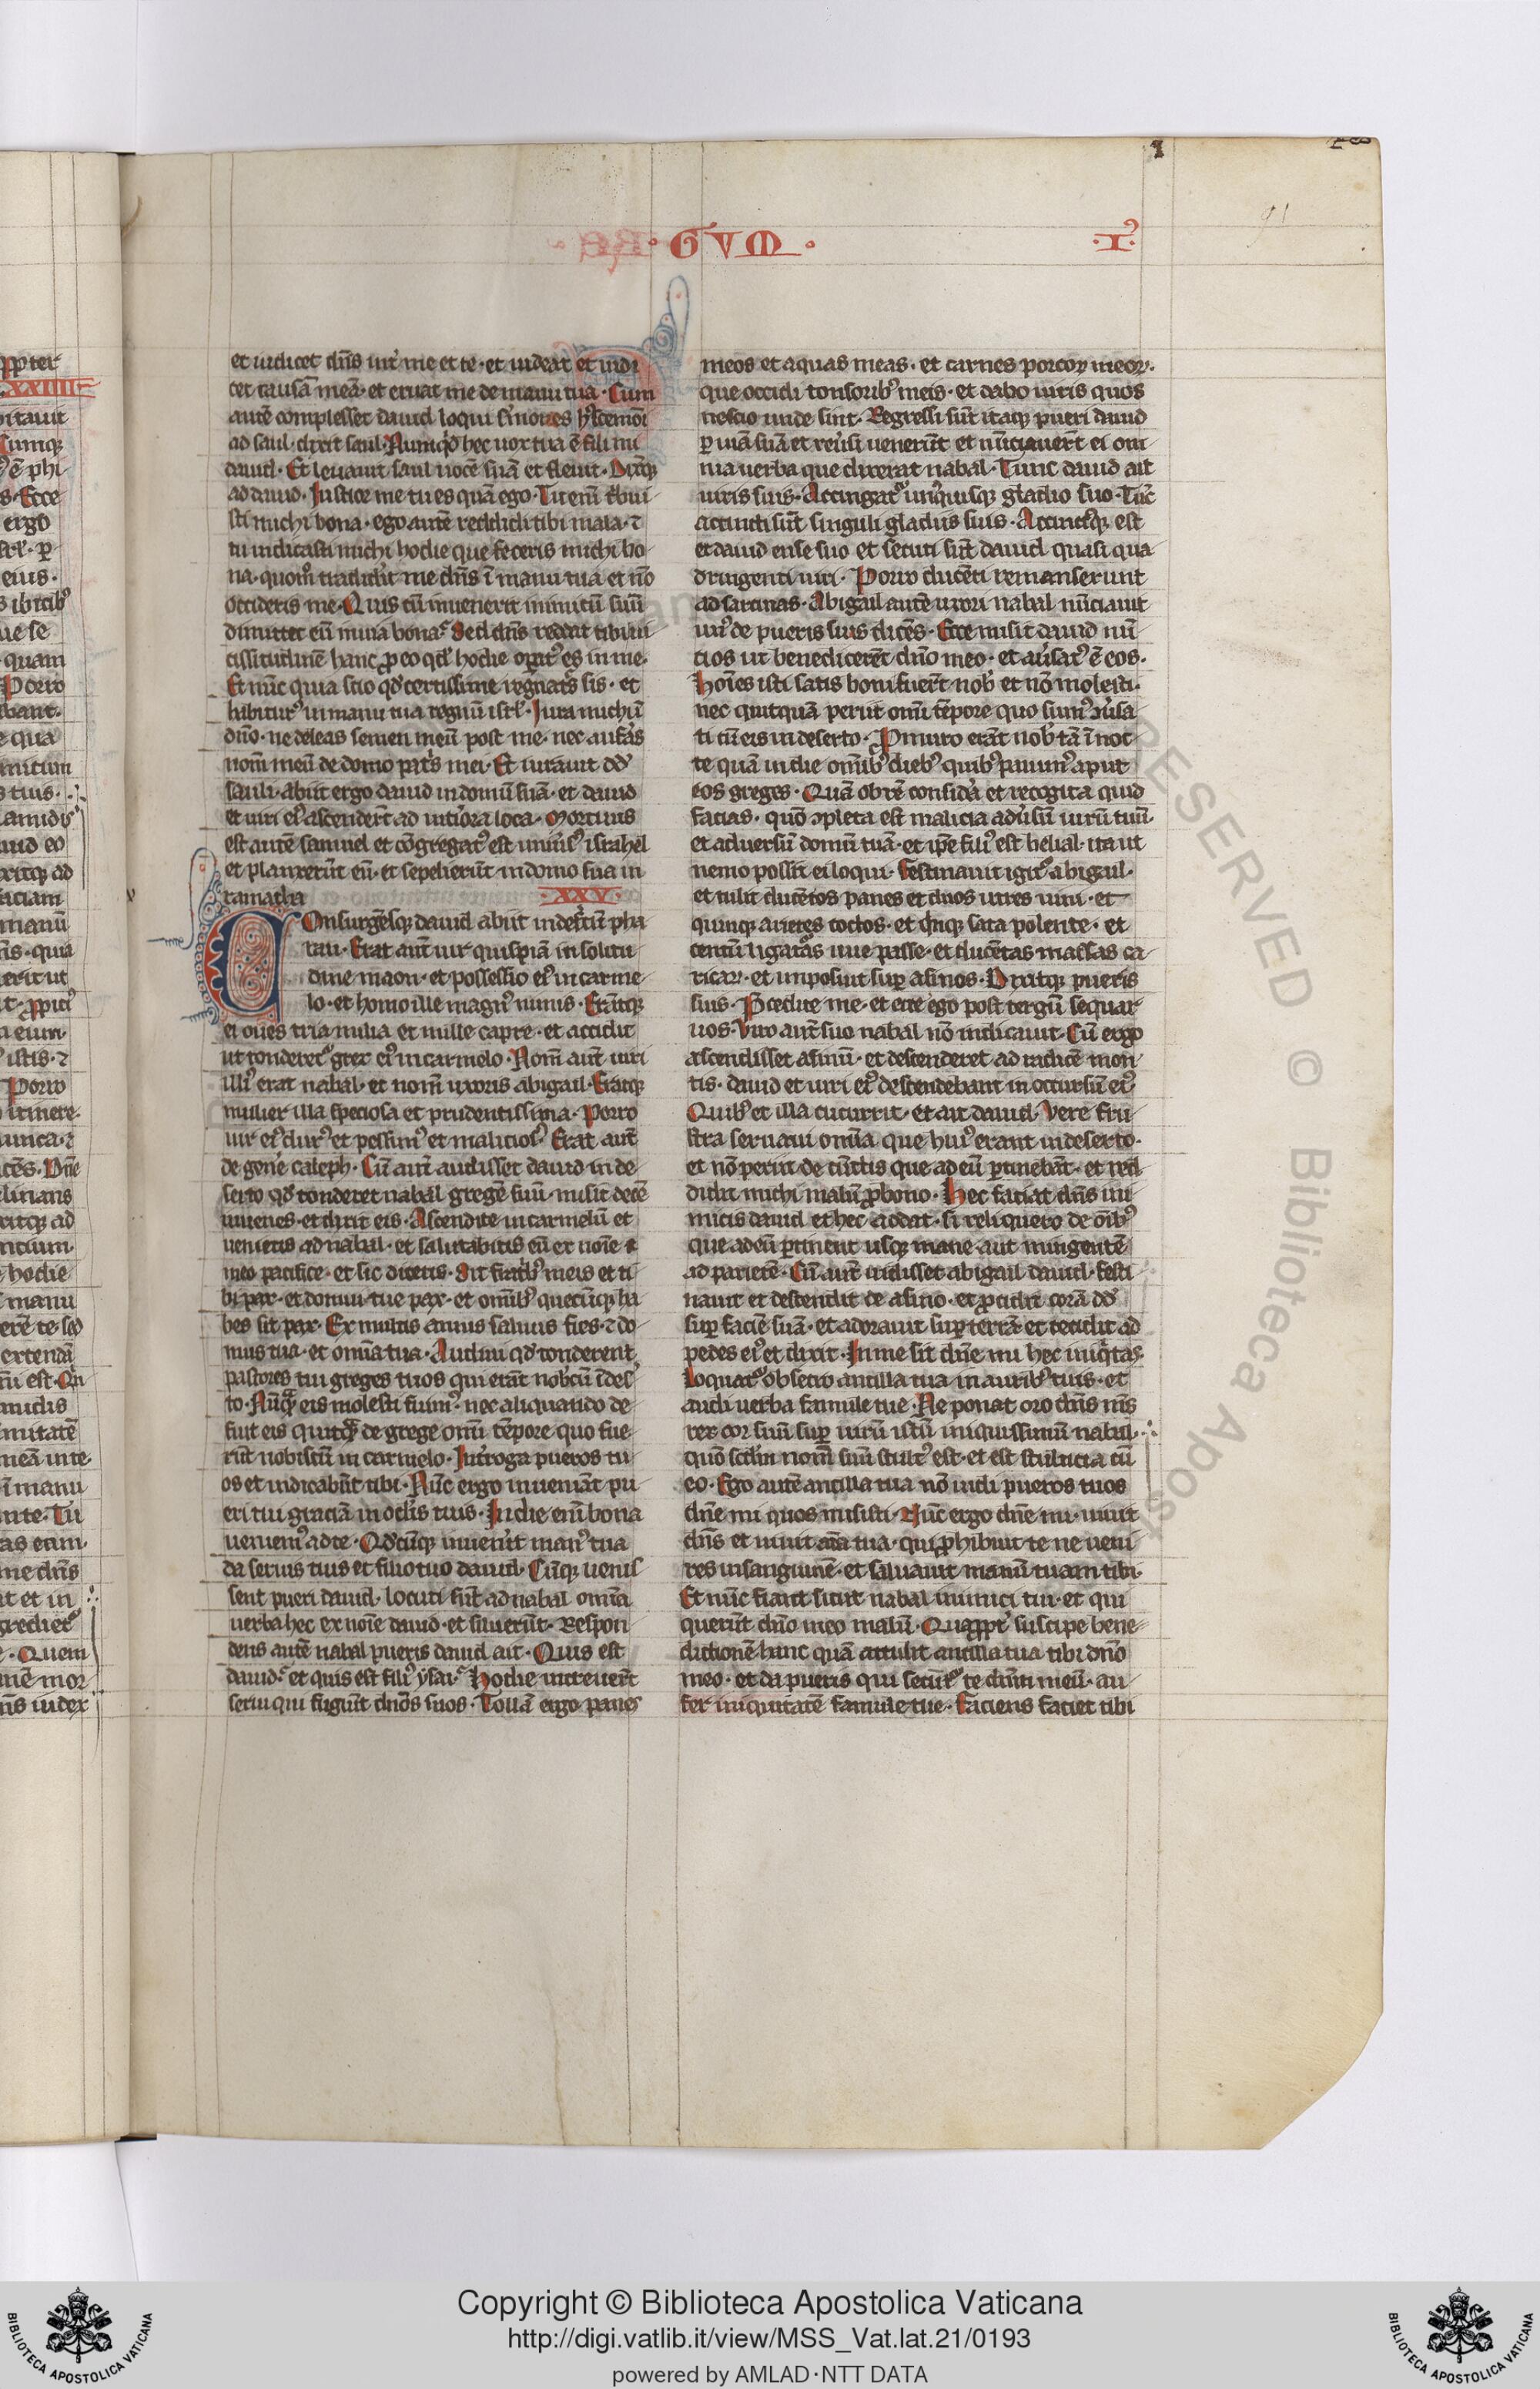 · GVM ·
·I·
91
et iudicet dn̄s int᷑ me et te · et uideat et iudi
cet causā meā · et eruat me de manu tua · Cum
autē complesset dauid loqui
ad saul · dixit saul · Nunq̄d hec uox tua ē fili mi
dauid · Et leuauit saul uocē suā et fleuit ·
ad dauid · Iustior me tu es quā ego · Tu eni᷑
sti michi bona · ego autē reddidi tibi mala · ⁊
tu indicasti michi hodie que feceris michi bo
na · quom̄ tradidit me dn̄s ī manu tua et nō
occideris me · Quis eū inuenerit inimicū suū
dimittet eū in uia bona · Sed dn̄s reddat tibi ui
cissitudinē hanc ꝓ eo qd̄ hodie oꝑatꝰ es in me ·
Et nūc quia scio qd̄ certissime regnatꝰs sis · et
habiturꝰ in manu tua regnū isrl̄ · Iura michi ī
dn̄o · ne deleas semen meū post me · nec auferas
nom̄ meū de domo pat᷑s mei · Et iurauit dd̄
sauli · abiit ergo dauid in domū suā · et dauid
et uiri eiꝰ ascendert̄ ad tutiora loca · Mortuus
est autē samuel et cōgregatꝰ est uniuersꝰ israhel
et planxerūt eū · et sepelierūt in domo sua in
ramatha
· XXV ·
Onsurgēsq̄ dauid abiit in desertū pha
ran · Erat aut̄ uir quispiā in solitu
dine maon · et possessio eiꝰ in carme
lo · et homo ille magnꝰ nimis · Erātq̄
ei oues tria milia et mille capre · et accidit
ut tonderetᷣ grex eiꝰ in carmelo · Nom̄ aut̄ uiri
illiꝰ erat nabal · et nom̄ uxoris abigail · Eratq̄
mulier illa speciosa et prudentissima · Porro
uir eiꝰ durꝰ et pessimꝰ et maliciosꝰ · Erat aut̄
de gene᷑ caleph · Cū aut̄ audisset dauid in de
serto qd̄ tonderet nabal gregē suū · misit decē
iuuenes · et dixit eis · Ascendite in carmelū et
uenietis ad nabal · et salutabitis eū ex noīe
meo pacifice · et sic dicetis · Sit fratribꝰ meis et ti
bi pax · et domui tue pax · et omībꝰ quecūq̄ ha
bes sit pax · Ex multis annis saluus fies · ⁊ do
mus tua · et omīa tua · Audiui qd̄ tonderent
pastores tui greges tuos qui erāt nob᷑cū ī des᷑
to · Nūq̄ eis molesti fuimꝰ · nec aliquando de
fuit eis quicq̄ de grege omī tēpore quo fue
rūt nobiscū in carmelo · Int᷑roga pueros tu
os et indicabūt tibi · Nūc ergo inueniāt pu
eri tui graciā in oculis tuis · In die eni᷑ bona
uenimꝰ ad te · Qd̄cūq̄ inuenerit manꝰ tua
da seruis tuis et filio tuo dauid · Cūq̄ uenis
sent pueri dauid · locuti sūt ad nabal omīa
uerba hec ex noīe dauid · et siluerūt · Respon
dens autē nabal pueris dauid ait · Quis est
dauid · et quis est filiꝰ ysai · Hodie increuert̄
serui qui fugiūt dn̄os suos · Tollā ergo panes
meos et aquas meas · et carnes porcoꝝ meoꝝ ·
que occidi tonsoribꝰ meis · et dabo uiris quos
nescio unde sint · Regressi sūt itaq̄ pueri dauid
ꝑ uiā suā et reu᷑si uenerūt et nūciauert̄ ei om
nia uerba que dixerat nabal · Tunc dauid ait
uiris suis · Accingatᷣ unꝰquisq̄ gladio suo ·
accincti sūt singuli gladiis suis · Accinctꝰq̄ est
et dauid ense suo et secuti sūt dauid quasi qua
dringenti uiri · Porro ducēti remanserunt
ad sarcinas · Abigail autē uxori nabal nūciauit
unꝰ de pueris suis dicēs · Ecce misit dauid nū
cios ut benedicerēt dn̄o meo · et au᷑satꝰ ē eos ·
Hoīes isti satis boni fuert̄ nob᷑ et nō molesti ·
nec quitquā periit omī tēpore quo fuimꝰ ꝯu᷑sa
ti cū eis in deserto · P muro erāt nob᷑ tā ī noc
te quā in die omībꝰ diebꝰ quibꝰ pauimꝰ aput
eos greges · Quā obrē considera et recogita quid
facias · quō ꝯpleta est malicia aduersū uirū tuū ·
et aduersū domū tuā · et ipē filiꝰ est belial · ita ut
nemo possit ei loqui · Festinauit igitᷣ abigail ·
et tulit ducētos panes et duos utres uini · et
quinq̄ arietes coctos · et q̄nq̄ sata polente · et
centū ligaturas uue passe · et ducētas massas ca
ricaꝝ · et imposuit suꝑ asinos · Dixitq̄ pueris
suis · P̄cedite me · et ecce ego post tergū sequar
uos · Viro aut̄ suo nabal nō indicauit · Cū ergo
ascendisset asinū · et descenderet ad radicē mon
tis · dauid et uiri eiꝰ descendebant in occursū eiꝰ ·
Quibꝰ et illa cucurrit · et ait dauid · Vere fru
stra seruaui omīa que huiꝰ erant in deserto ·
et nō periit de cūctis que ad eū ꝑtinebāt · et red
didit michi malū ꝓ bono · Hec faciat dn̄s ini
micis dauid et hec addat · si reliquero de oībꝰ
que ad eū ꝑtinent usq̄ mane aut mingentē
ad parietē · Cū aut̄ uidisset abigail dauid · festi
nauit et descendit de asino · et ꝓcidit corā dd̄
suꝑ faciē suā · et adorauit suꝑ terrā et cecidit ad
pedes eiꝰ et dixit · In me sit dn̄e mi hec iniq̄tas ·
Loquatᷣ obsecro ancilla tua in auribꝰ tuis · et
audi uerba famule tue · Ne ponat oro dn̄s m̄s
rex cor suū suꝑ uirū istū iniquissimū nabal ·
quō scd̄m nom̄ suū stultꝰ est · et est stulticia cū
eo · Ego autē ancilla tua nō uidi pueros tuos
dn̄e mi quos misisti · Nūc ergo dn̄e mi · uiuit
dn̄s et uiuit aīa tua · qui ꝓhibuit te ne ueni
res in sanguinē · et saluauit manū tuam tibi ·
Et nūc fiant sicut nabal inimici tui · et qui
querūt dn̄o meo malū · Quaꝓpt᷑ suscipe bene
dictionē hanc quā attulit ancilla tua tibi dn̄o
meo · et da pueris qui secūtᷣ te dn̄m meū · au
fer iniquitatē famule tue · Faciens faciet tibi
PRESERVED © Biblioteca Apost
Copyright © Biblioteca Apostolica Vaticana
http://digi.vatlib.it/view/MSS_Vat.lat.21/0193
powered by AMLAD·NTT DATA
BIBLIOTECA APOSTOLICA VATICANA
BIBLIOTECA APOSTOLICA VATICANA